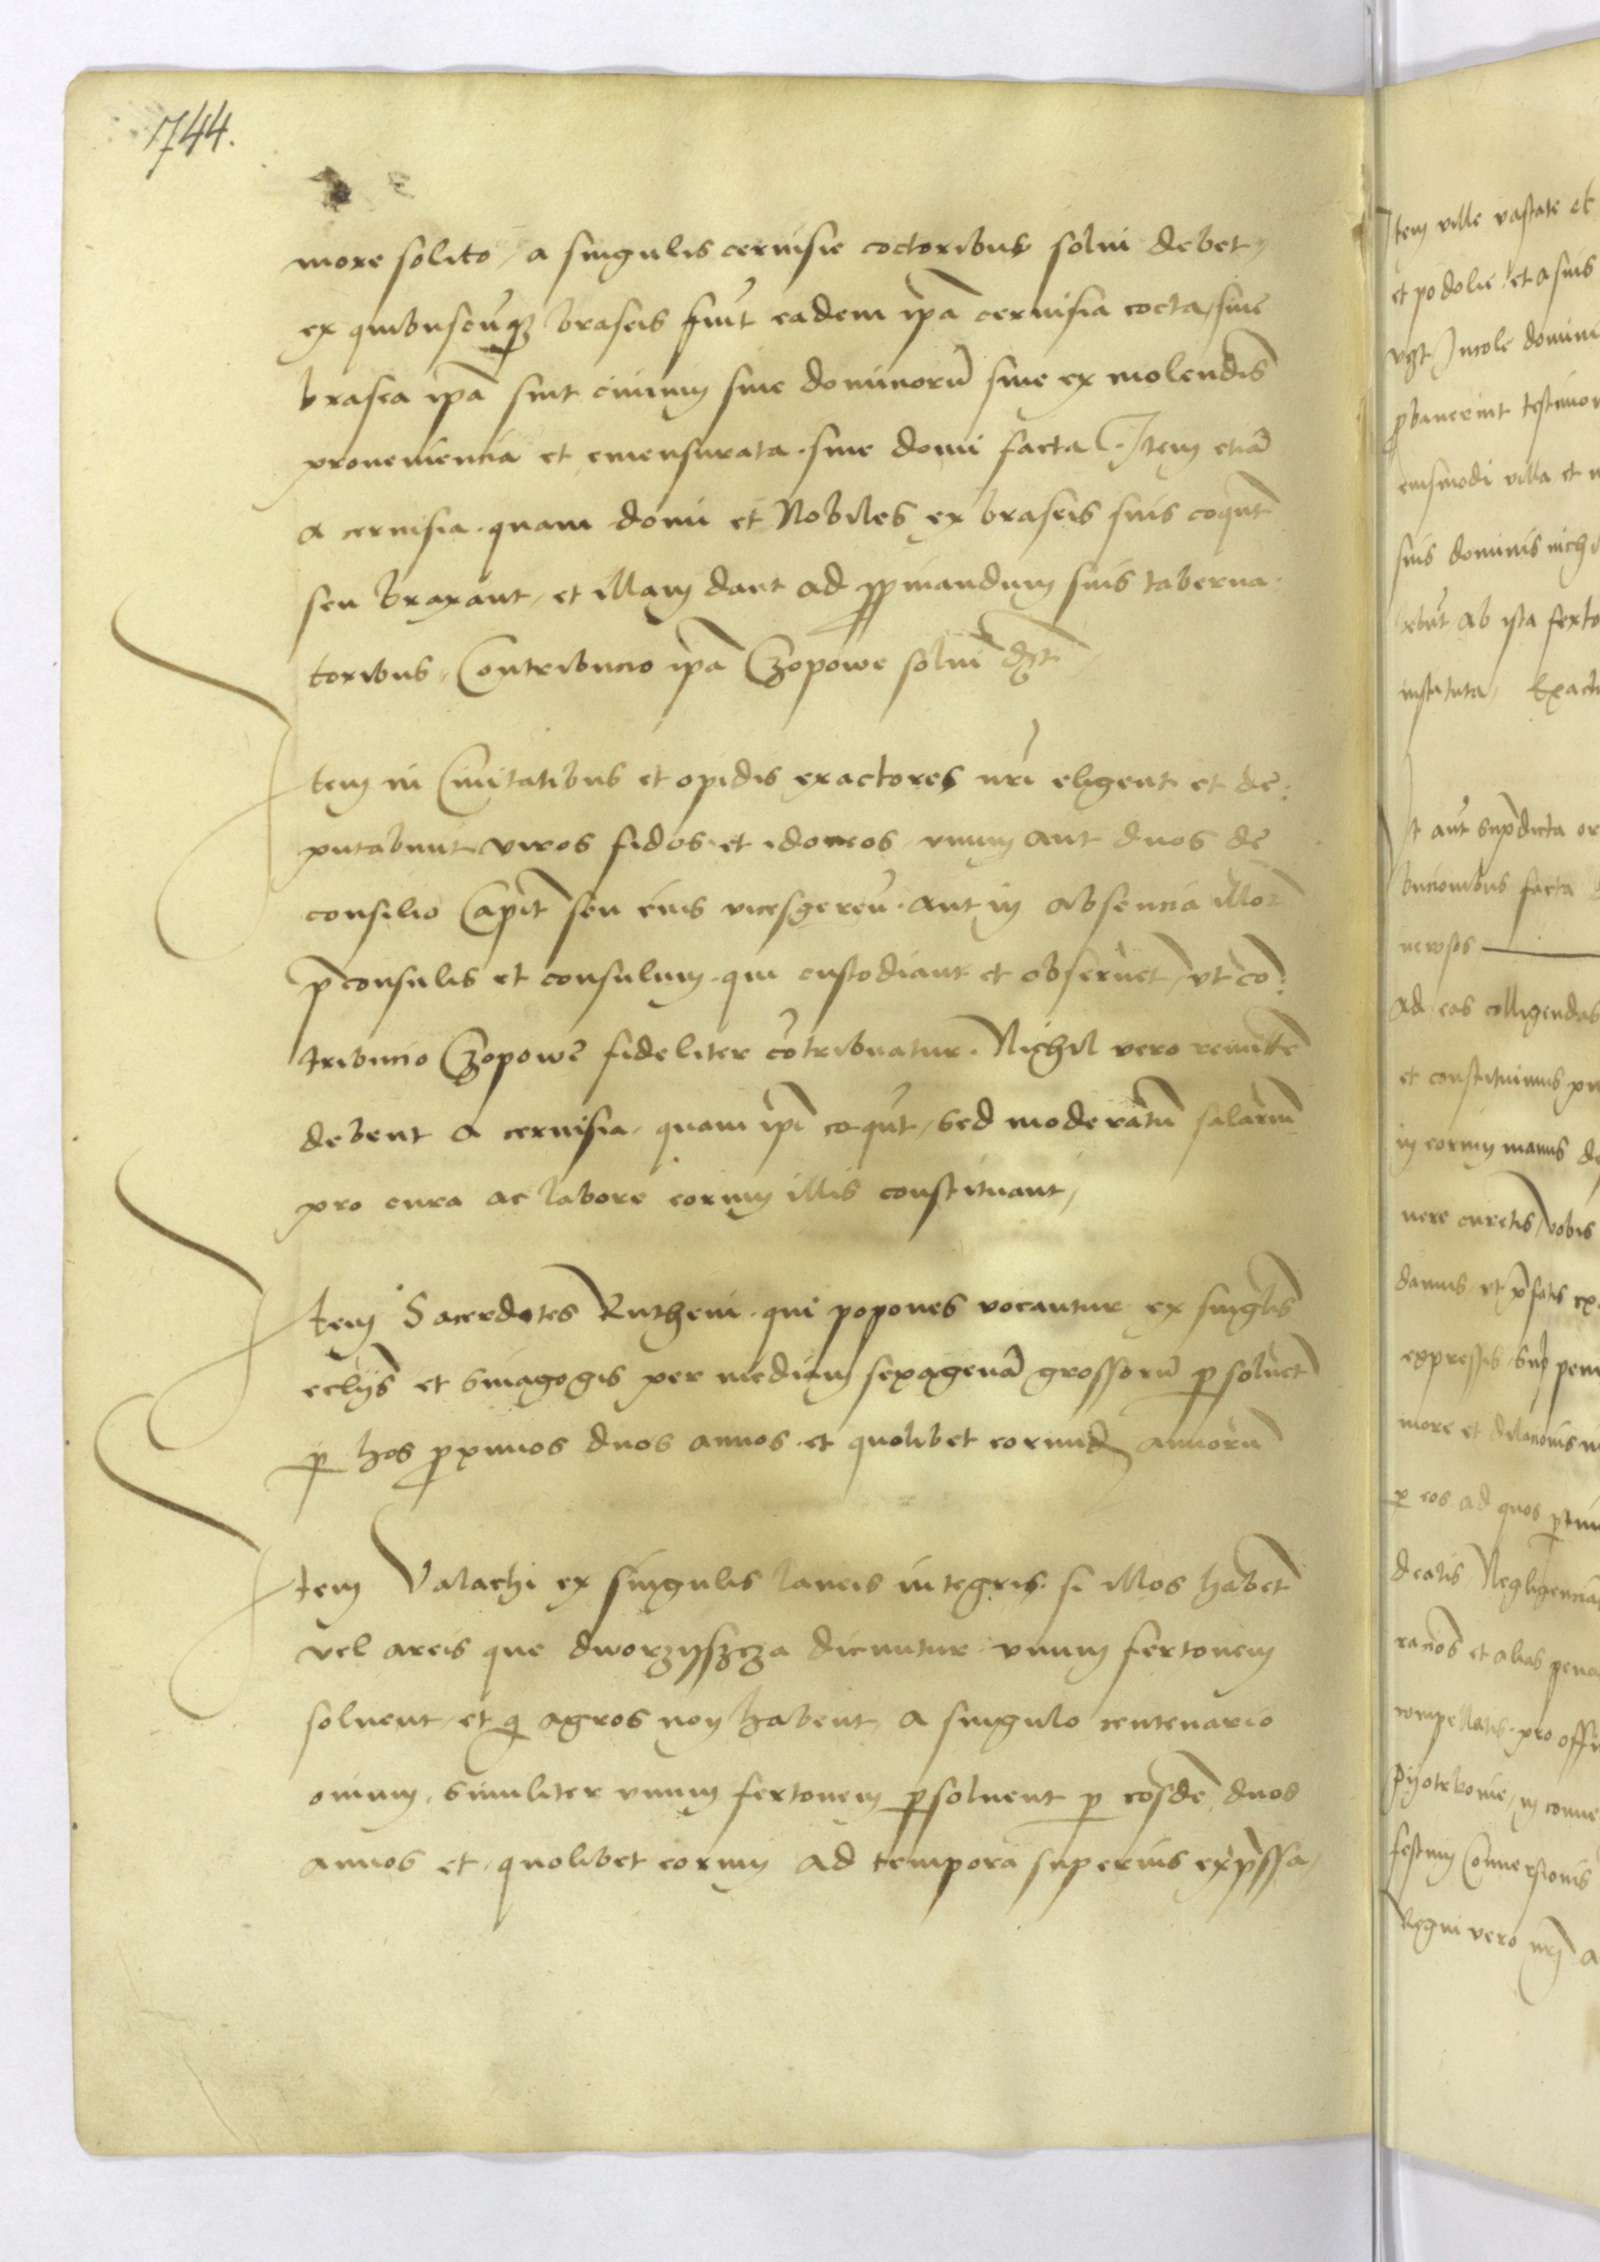 1744.
more solito, a singulis cervisie coctoribus solui debet,
ex quibuscuqz braseis fiut eadem ipa cervisia cocta, siue
brasea ipa sint ciuium siue dominoru siue ex molendis
proueniencia et emensurata. siue domi facta. Item etia
a ceruisia. quam domi et Nobiles ex braseis suis coqunt
seu braxant, et illam dant ad ppinandum suis taberna:
toribus, Contribucio ipa Czopowe solui dt
Item in Ciuitatibus et opidis exactores nri eligent et de:
putabunt viros fidos et idoneos vnum aut duos de
consilio Capit seu eius vicesgeren. aut in absencia illor
pconsulis et consulum. qui custodiant et obseruet, vt co:
tribucio Czopowe fideliter cotribuatur. Nichil vero remitte
debent a ceruisia, quam ipi coqut, sed moderatu salariu
pro cura ac labore eorum illis constituant,
Item Sacerdotes Rutheni. qui popones vocantur ex singlis
eclijs et sinagogis per mediam sexagena grossoru psoluet
p hos proximos duos annos. et quolibet eorund annoru
Item Valachi ex singulis laneis integris. si illos habet
vel areis que dworzyszcza dicuntur vnum fertonem
soluent, et q agros non habent, a singulo centenario
ouium, similiter vnum fertonem psoluent p eosde duos
annos et quolibet eorum ad tempora superius expssa,
Item ville vastate et
et podolie et a suis
vgt Incole domini
pbauerint testimon
eiusmodi villa et
suis dominis nichi
ab ista ferto
instituta, Exact
It aut supdicta or
bucionibus facta
ad eas colligendas
et constituimus
in eorum manus de
nere curetis, vobis
damus et pfatis ex
expressis sub pen
more et
p eos ad quos ptin
deatis Negligencia
raciões et alias pena
compellatis. pro offi
Pyotrkouie, in conue
festum Conuersionis
Regni vero nri a